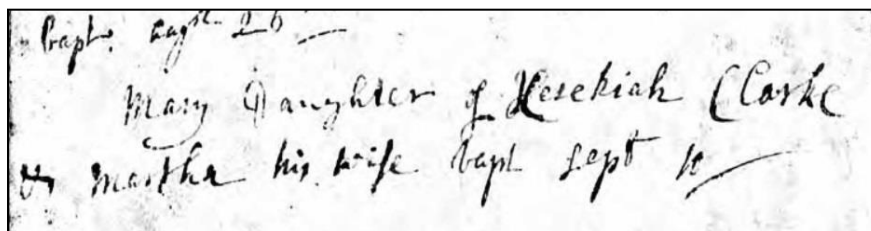 bapt. augst 26
Mary Daughter of Hesekiah Clarke
& Martha his wife bapt Sept 10